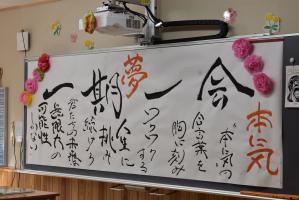 一期一会
夢
本気
“本気”の
合言葉を
胸に刻み
ワクワクする
人生に挑み
続けろ
君たちの
無限大の
可能性